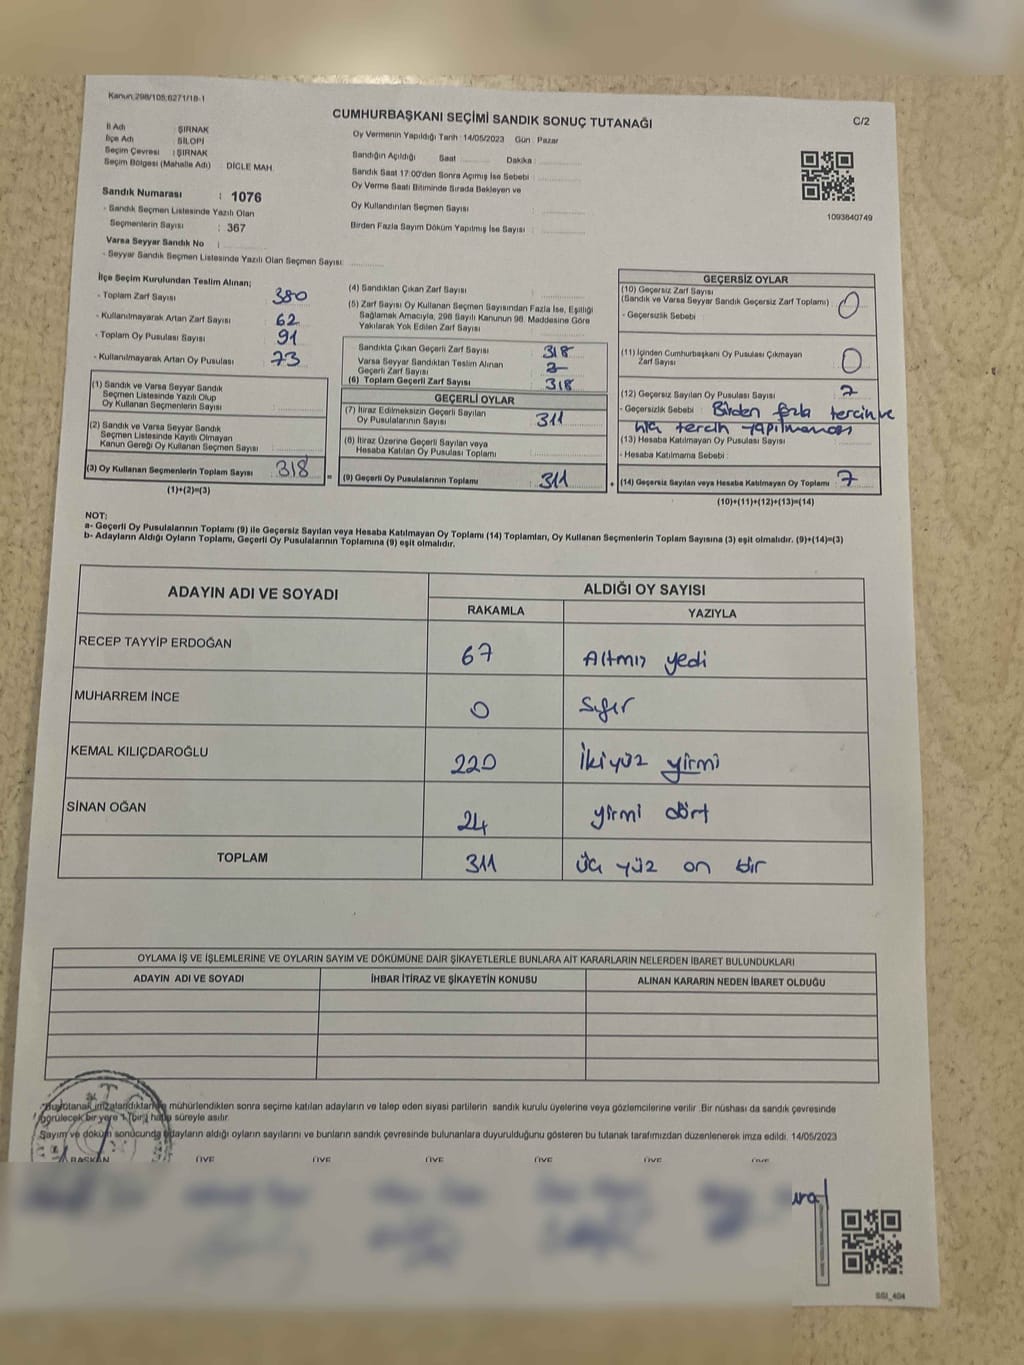 Kanun:298/105;6271/18-1
CUMHURBAŞKANI SEÇİMİ SANDIK SONUÇ TUTANAĞI
C/2
İl Adı : ŞIRNAK
İlçe Adı : SİLOPİ
Seçim Çevresi : ŞIRNAK
Seçim Bölgesi (Mahalle Adı) : DİCLE MAH.
Sandık Numarası : 1076
- Sandık Seçmen Listesinde Yazılı Olan
Seçmenlerin Sayısı : 367
Varsa Seyyar Sandık No :
- Seyyar Sandık Seçmen Listesinde Yazılı Olan Seçmen Sayısı:
Oy Vermenin Yapıldığı Tarih : 14/05/2023 Gün : Pazar
Sandığın Açıldığı Saat Dakika
Sandık Saat 17:00'den Sonra Açımış İse Sebebi :
Oy Verme Saati Bitiminde Sırada Bekleyen ve
Oy Kullandırılan Seçmen Sayısı :
Birden Fazla Sayım Döküm Yapılmış İse Sayısı :
1093840749
İlçe Seçim Kurulundan Teslim Alınan;
- Toplam Zarf Sayısı 380
- Kullanılmayarak Artan Zarf Sayısı 62
- Toplam Oy Pusulası Sayısı 91
- Kullanılmayarak Artan Oy Pusulası 73
(1) Sandık ve Varsa Seyyar Sandık
Seçmen Listesinde Yazılı Olup
Oy Kullanan Seçmenlerin Sayısı
(2) Sandık ve Varsa Seyyar Sandık
Seçmen Listesinde Kayıtlı Olmayan
Kanun Gereği Oy Kullanan Seçmen Sayısı
(3) Oy Kullanan Seçmenlerin Toplam Sayısı 318
(1)+(2)=(3)
(4) Sandıktan Çıkan Zarf Sayısı :
(5) Zarf Sayısı Oy Kullanan Seçmen Sayısından Fazla İse, Eşitliği
Sağlamak Amacıyla, 298 Sayılı Kanunun 98. Maddesine Göre
Yakılarak Yok Edilen Zarf Sayısı
Sandıkta Çıkan Geçerli Zarf Sayısı : 318
Varsa Seyyar Sandıktan Teslim Alınan
Geçerli Zarf Sayısı
(6) Toplam Geçerli Zarf Sayısı : 318
GEÇERLİ OYLAR
(7) İtiraz Edilmeksizin Geçerli Sayılan
Oy Pusulasının Sayısı : 311
(8) İtiraz Üzerine Geçerli Sayılan veya
Hesaba Katılan Oy Pusulası Toplamı
=
(9) Geçerli Oy Pusulalarının Toplamı : 311
+
GEÇERSİZ OYLAR
(10) Geçersiz Zarf Sayısı
(Sandık ve Varsa Seyyar Sandık Geçersiz Zarf Toplamı) : 0
- Geçersizlik Sebebi :
(11) İçinden Cumhurbaşkanı Oy Pusulası Çıkmayan
Zarf Sayısı : 0
(12) Geçersiz Sayılan Oy Pusulası Sayısı : 7
- Geçersizlik Sebebi : Birden fazla tercih ve
hiç tercih yapılmaması
(13) Hesaba Katılmayan Oy Pusulası Sayısı
- Hesaba Katılmama Sebebi :
(14) Geçersiz Sayılan veya Hesaba Katılmayan Oy Toplamı : 7
(10)+(11)+(12)+(13)=(14)
NOT:
a- Geçerli Oy Pusulalarının Toplamı (9) ile Geçersiz Sayılan veya Hesaba Katılmayan Oy Toplamı (14) Toplamları, Oy Kullanan Seçmenlerin Toplam Sayısına (3) eşit olmalıdır. (9)+(14)=(3)
b- Adayların Aldığı Oyların Toplamı, Geçerli Oy Pusulalarının Toplamına (9) eşit olmalıdır.
ADAYIN ADI VE SOYADI
ALDIĞI OY SAYISI
RAKAMLA YAZIYLA
RECEP TAYYİP ERDOĞAN 67 Altmış yedi
MUHARREM İNCE 0 Sıfır
KEMAL KILIÇDAROĞLU 220 İkiyüz yirmi
SİNAN OĞAN 24 yirmi dört
TOPLAM 311 üç yüz on bir
OYLAMA İŞ VE İŞLEMLERİNE VE OYLARIN SAYIM VE DÖKÜMÜNE DAİR ŞİKAYETLERLE BUNLARA AİT KARARLARIN NELERDEN İBARET BULUNDUKLARI
ADAYIN ADI VE SOYADI İHBAR İTİRAZ VE ŞİKAYETİN KONUSU ALINAN KARARIN NEDEN İBARET OLDUĞU
Bu tutanak imzalandıktan mühürlendikten sonra seçime katılan adayların ve talep eden siyasi partilerin sandık kurulu üyelerine veya gözlemcilerine verilir. Bir nüshası da sandık çevresinde
görülecek bir yere 1 (bir) hafta süreyle asılır.
Sayım ve döküm sonucunda adayların aldığı oyların sayılarını ve bunların sandık çevresinde bulunanlara duyurulduğunu gösteren bu tutanak tarafımızdan düzenlenerek imza edildi. 14/05/2023
BAŞKAN ÜYE ÜYE ÜYE ÜYE ÜYE ÜYE
SSI_404